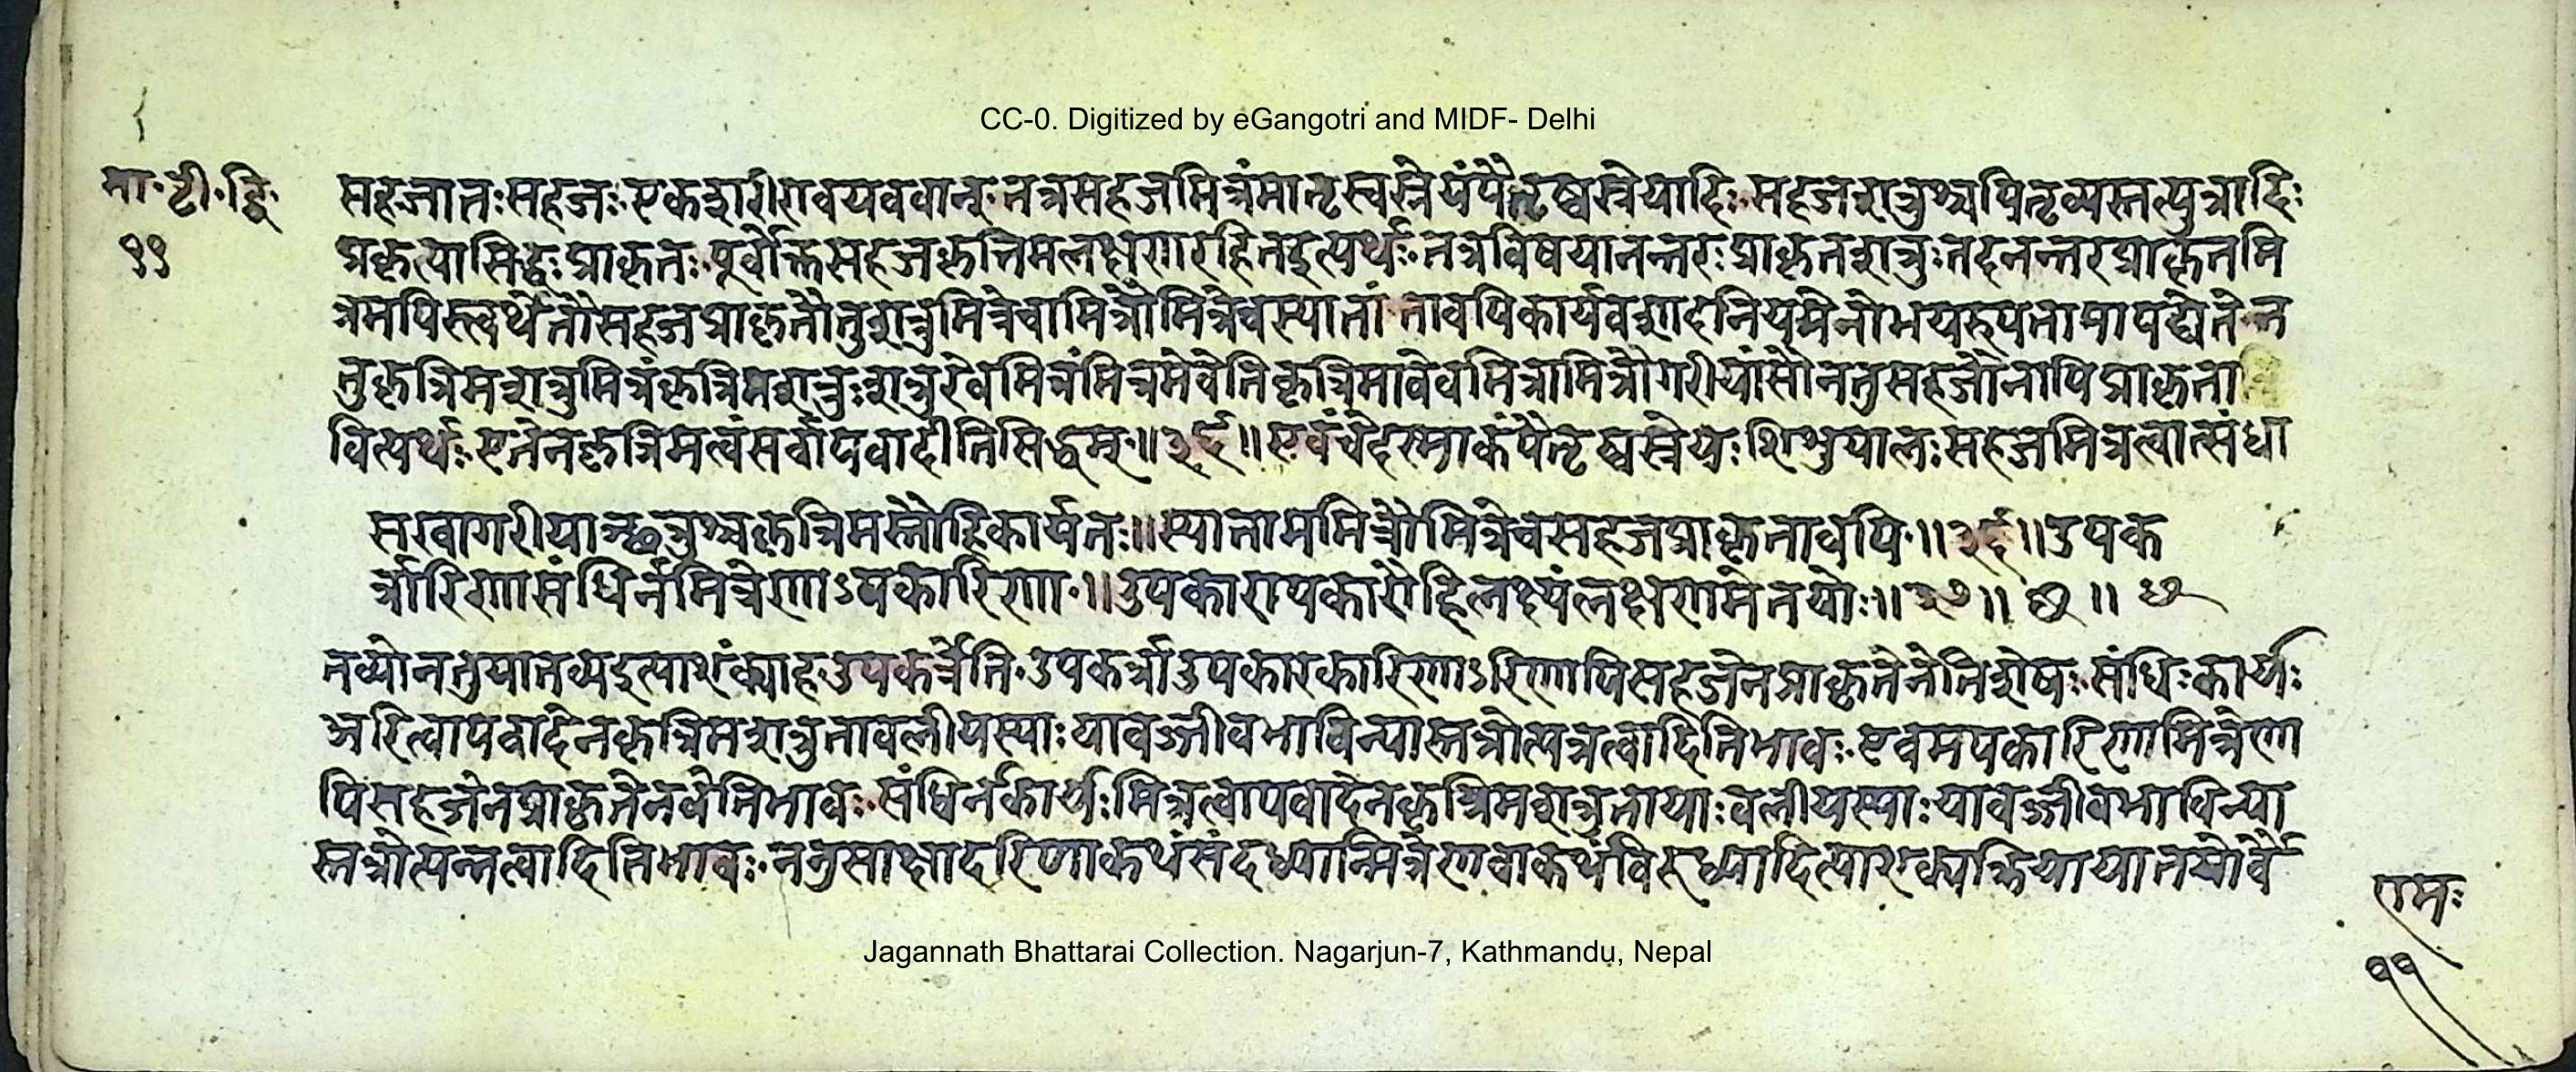 CC-0. Digitized by eGangotri and MIDF- Delhi
मा॰ टी॰ द्वि॰
११
सहजातःसहजः॰एकशरीरावयववान्॰तत्रसहजमित्रंमातृस्वस्रेयंपैतृष्वस्रेयादिः॰सहजशत्रुश्चपितृव्यस्तत्पुत्रादिः
प्रकृत्यासिद्धःप्राकृतः॰पूर्वोक्तसहजकृत्रिमलक्षणरहितइत्यर्थः॰तत्रविषयानन्तरःप्राकृतशत्रुःतदनन्तरप्राकृतमि
त्रमपिस्त्वर्थेतौसहजप्राकृतौतुशत्रुमित्रेचामित्रौमित्रेचस्यातां तावपिकार्यवशादनियमेनोभयरुपतामापद्येते॰न
तुकृत्रिमशत्रुमित्रंकृत्रिमशत्रुःशत्रुरेवमित्रंमित्रमेवेतिकृत्रिमावेवमित्रामित्रौगरीयांसौनतुसहजौनापिप्राकृता
वित्यर्थः॰एतेनकृत्रिमत्वंसर्वापवादीतिसिद्धम्॰॥३६॥एवंचेहस्माकंपैतृष्वस्रेयःशिशुपालःसहजमित्रत्वात्संधा
सखागरीयाञ्छत्रुश्चकृत्रिमस्तौहिकार्यतः॥स्यातामममित्रौमित्रेचसहजप्राकृतावपि॰॥३६॥उपक
र्त्रारिणासंधिर्नमित्रेणाऽपकारिणा॰॥उपकारापकारौहिलक्ष्यंलक्षणमेतयोः॥३७॥ छ ॥ छ
तव्योनतुयातव्यइत्याशंक्याहउपकर्त्रेति॰उपकर्त्राउपकारकारिणाऽरिणापिसहजेनप्राकृतेनेतिशेषः॰संधिःकार्यः
अरित्वापवादेनकृत्रिमशत्रुतावलीयस्याःयावज्जीवभाविन्यास्तत्रोत्पन्नत्वादितिभावः॰एवमपकारिणामित्रेणा
पिसहजेनप्राकृतेनवेतिभावः॰संधिर्नकार्यःमित्रत्वापवादेनकृत्रिमशत्रुतायाःवलीयस्याःयावज्जीवभाविन्या
स्तत्रोत्पन्नत्वादितिभावः॰नतुसाक्षादरिणाकथंसंदध्यान्मित्रेणवाकथंविरुध्यादित्याशक्यक्तियायातयोर्वै
रामः
११
Jagannath Bhattarai Collection. Nagarjun-7, Kathmandu, Nepal